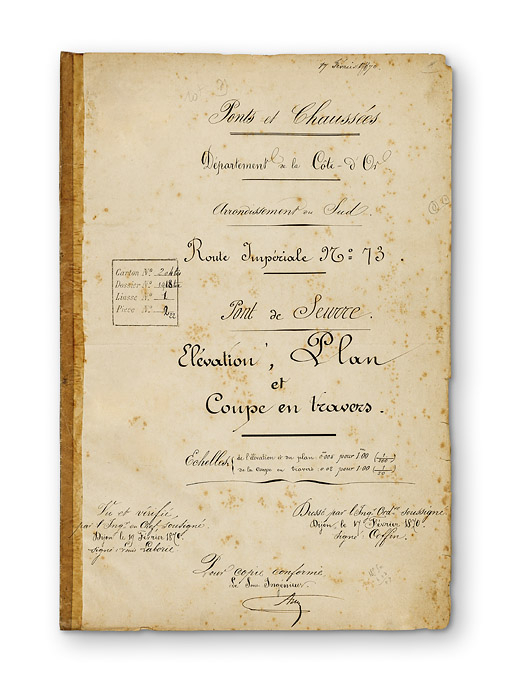 17 Février 1870
Ponts et Chaussées
Département de la Côte-d'Or
Arrondissement du Sud.
Route Impériale Nº 73.
Carton Nº
Dossier Nº
Liasse Nº 1
Pièce Nº
Pont de Seurre.
Elévation, Plan
et
Coupe en travers.
Echelles de l'élévation et du plan 0.005 pour 1.00 (1/200)
de la coupe en travers 0.05 pour 1.00 (1/20)
Vu et vérifié
par l'Ingr en Chef, soussigné
Dijon le 19 Février 1870.
signé
Dressé par l'Ingr Ordre soussigné
Dijon le 17 Février 1870.
signé Coffin
Pour copie conforme
Le Sous Ingénieur